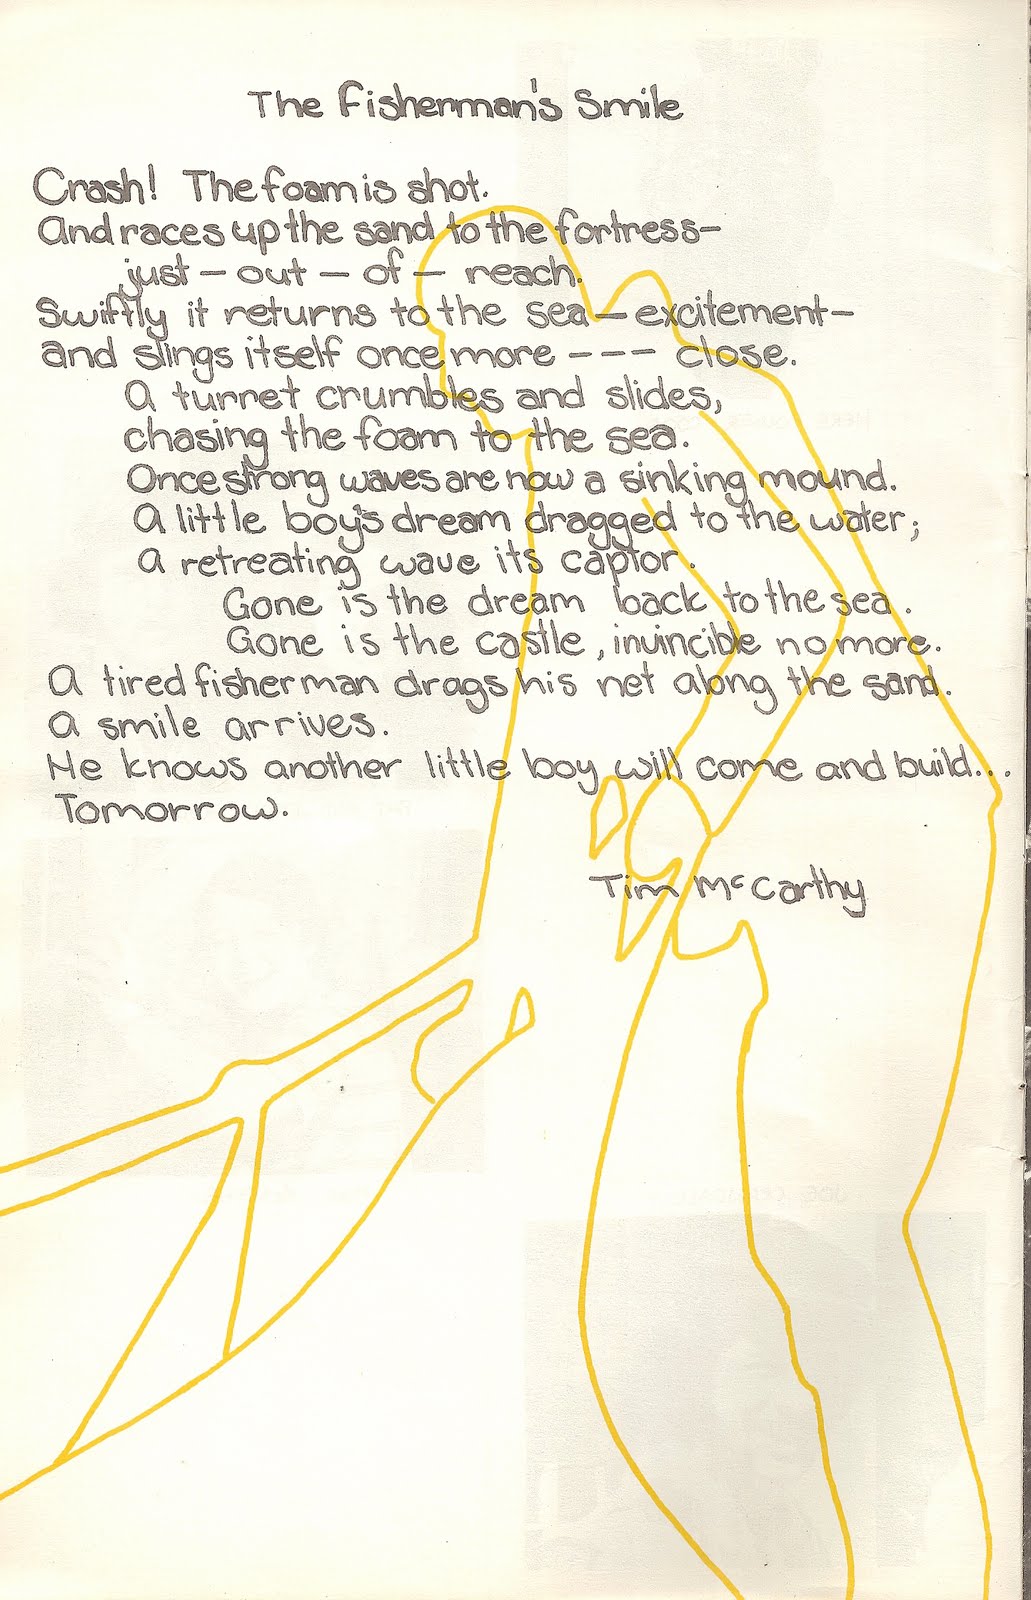 The Fisherman's Smile
Crash! The foam is shot.
And races up the sand to the fortress—
just — out — of — reach.
Swiftly it returns to the sea — excitement—
and slings itself once more --- close.
A turret crumbles and slides,
chasing the foam to the sea.
Once strong waves are now a sinking mound.
A little boy's dream dragged to the water;
A retreating wave its captor.
Gone is the dream back to the sea.
Gone is the castle, invincible no more.
A tired fisherman drags his net along the sand.
A smile arrives.
He knows another little boy will come and build...
Tomorrow.
Tim McCarthy